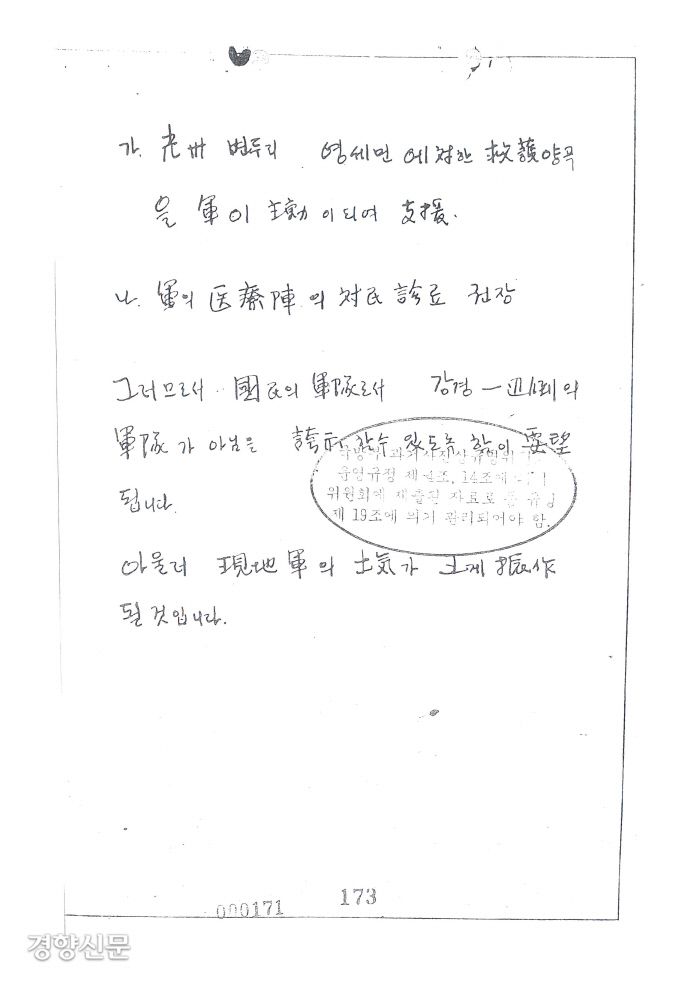 가. 光州 변두리 영세민에 対한 救護양곡
을 軍이 主動이되여 支援.
나. 軍의 医療陣의 対民 診료 권장
그러므로서 國民의 軍隊로서 강경 一辺倒의
軍隊가 아님은 誇示할수 있도록 함이 要望
됩니다.
운영규정 제4조, 14조에
위원회에 제출된 자료로
제 19조에 의거 관리되어야 함.
아울러 現地軍의 士気가 크게 振作
될 것입니다.
000171
173
경향신문